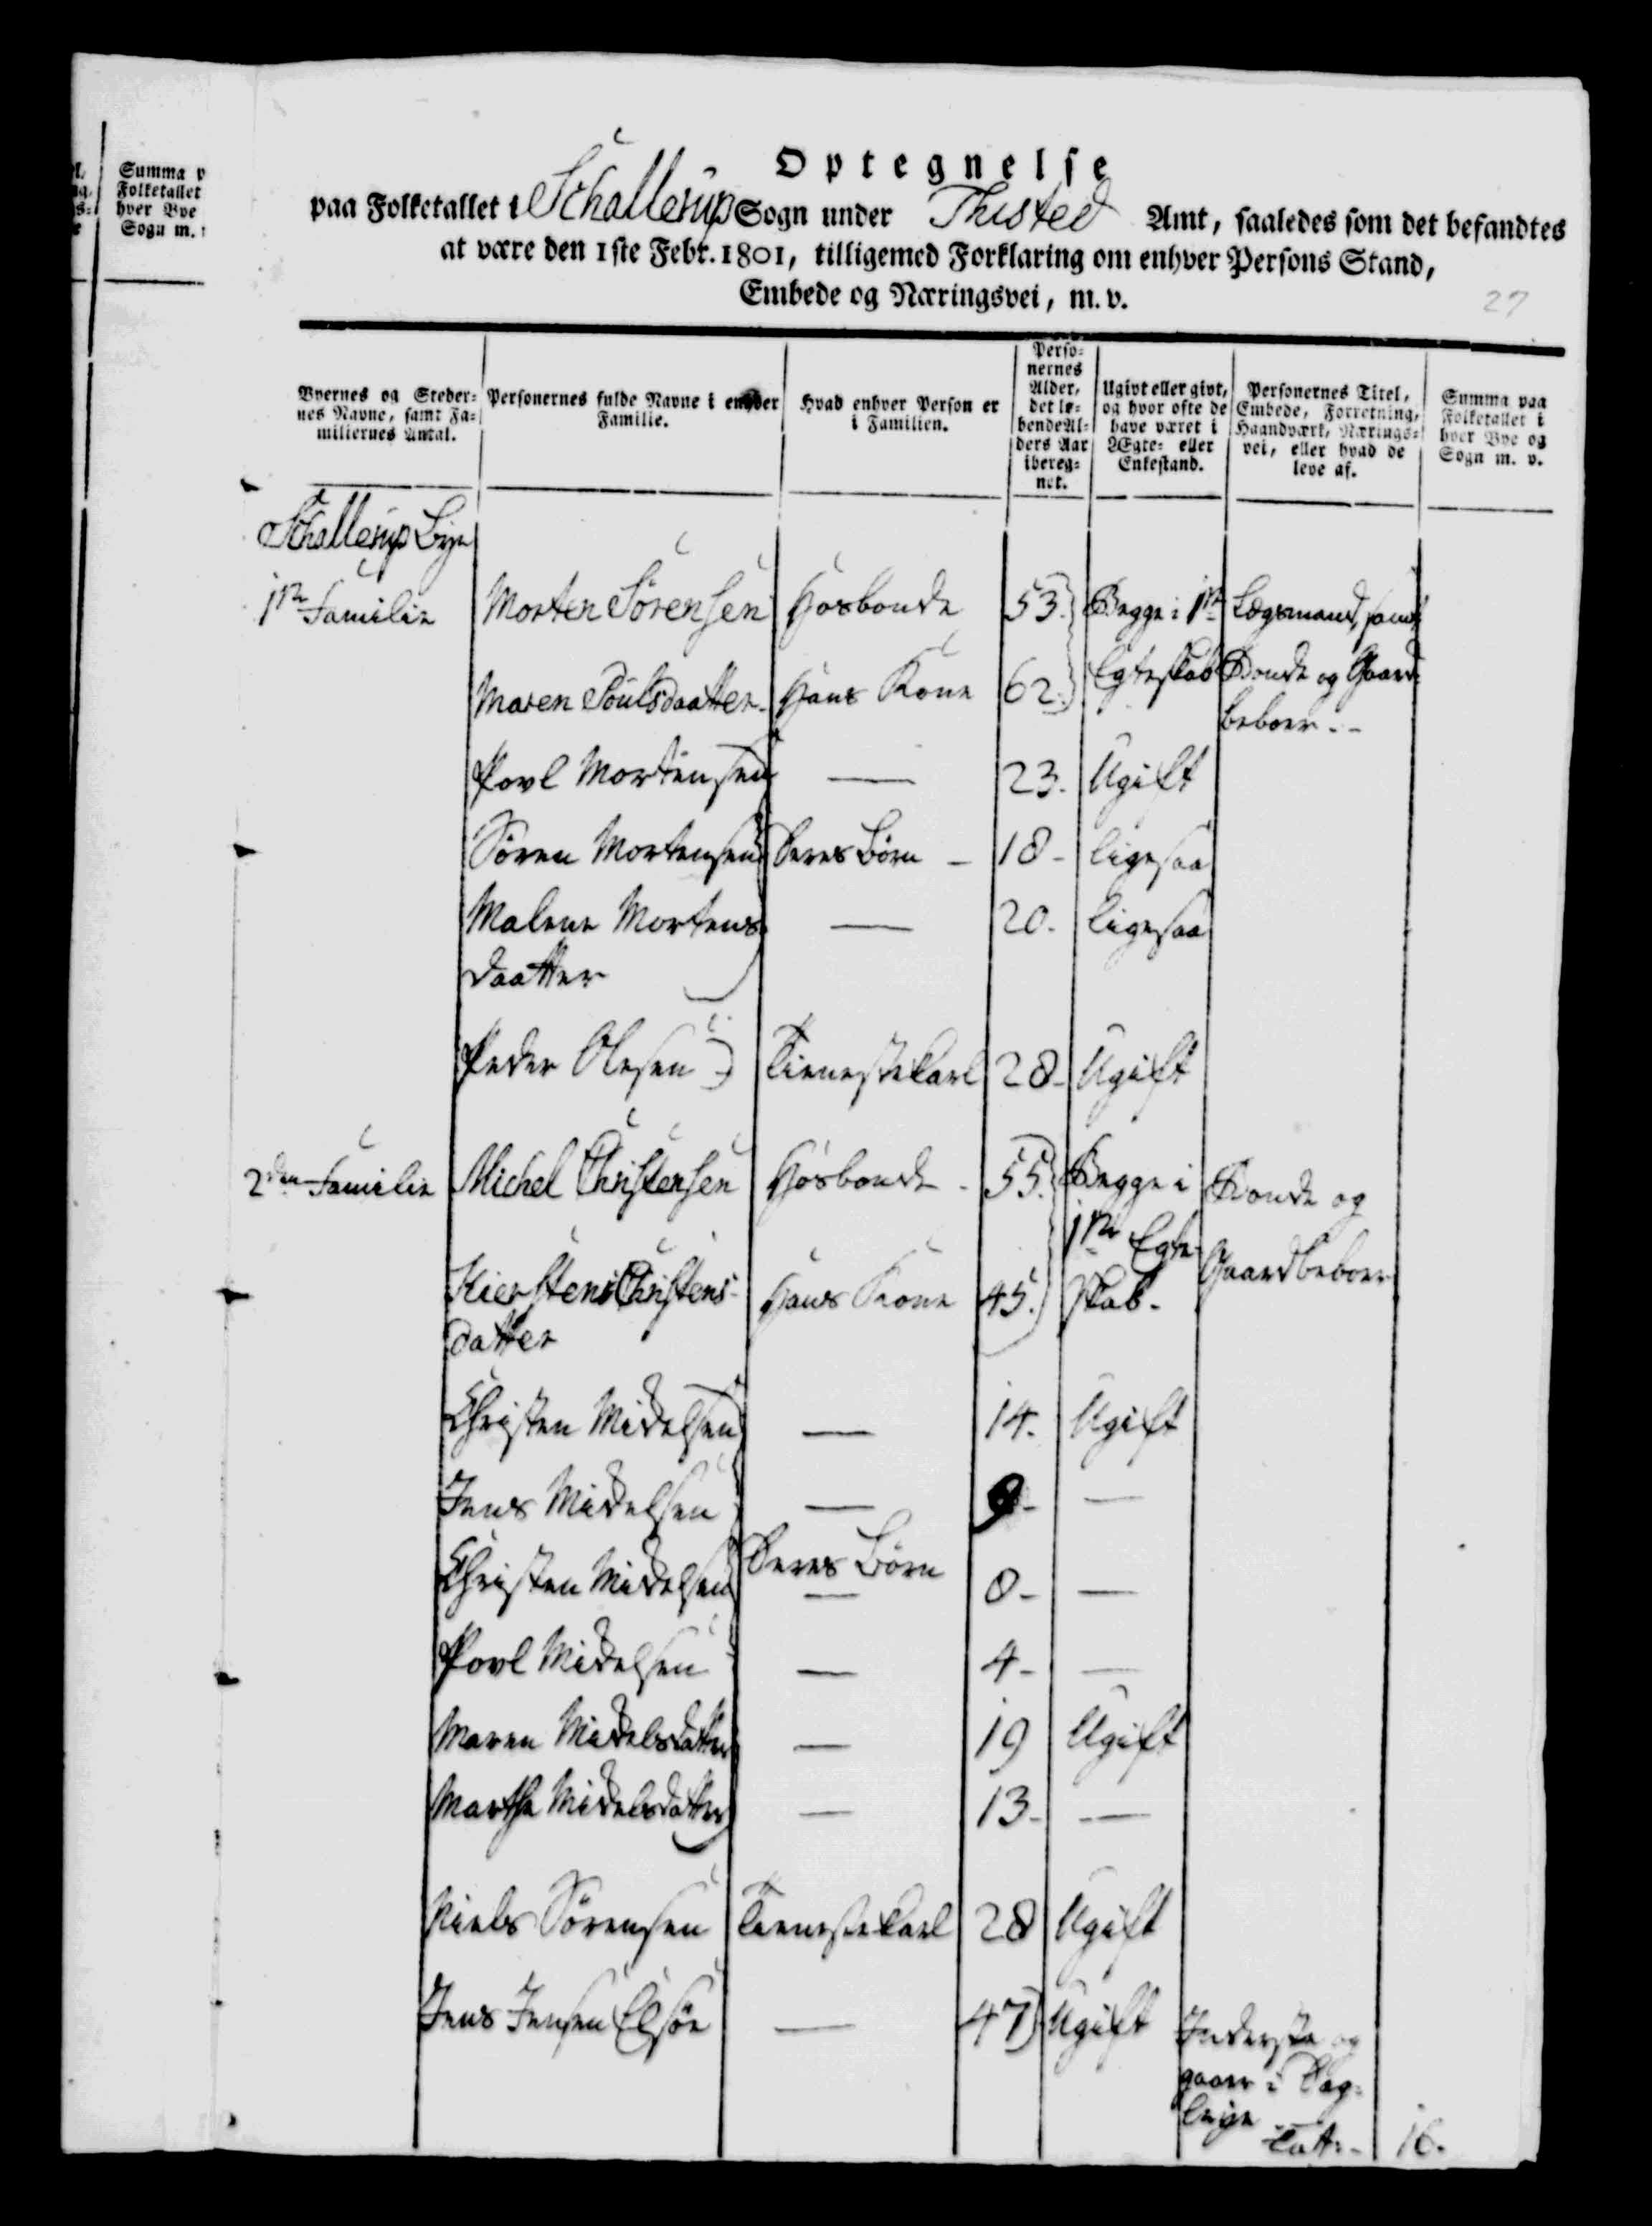 Optegnelse
paa Folketallet i Schallerup Sogn under Thisted Amt, saaledes som det befandtes
at være den 1ste Febr. 1801, tilligemed Forklaring om enhver Persons Stand,
Embede og Næringsvei, m. v.
27
Summa
Folketallet
hver Bye
Sogn m.
Byernes og Steder-
nes Navne, samt Fa-
miliernes Antal.
Personernes fulde Navne i enhver
Familie.
Hvad enhver Person er
i Familien.
Perso-
nernes
Alder,
det lø-
bende Al-
ders Aar
ibereg-
net.
Ugivt eller givt,
og hvor ofte de
have været i
Ægte- eller
Enkestand.
Personernes Titel,
Embede, Forretning,
Haandværk, Nærings-
vei, eller hvad de
leve af.
Summa paa
Folketallet i
hver Bye og
Sogn m. v.
Schallerup Bye
1ste Familie Morten Sörensen Hosbonde 53. Begge i 1ste Lægsmand, samt
Maren Poulsdaatter Hans Kone 62. Egteskab Bonde og Gaard-
beboer
Povl Mortensen — 23. Ugift
Sören Mortensen Deres Børn - 18 - ligesaa
Malene Mortens — 20. ligesaa
daatter
Peder Olesen Tienestekarl 28 - Ugift
2den Familie Michel Christensen Hosbonde - 55. Begge i Bonde og
1ste Egte- Gaardbeboer
Kiersten Christens- Hans Kone 45. skab.
datter
Christen Mickelsen — 14. Ugift
Jens Mickelsen — 9 - —
Deres Børn
Christen Mickelsen — 8 - —
Povl Mickelsen — 4 - —
Maren Mickelsdatter — 19 Ugift
Marthe Mickelsdatter — 13 - —
Niels Sörensen Tienestekarl 28 Ugift
Jens Jensen Elsöe — 47 Ugift Inderste og
gaaer i Dag-
leye
Lat. 16.